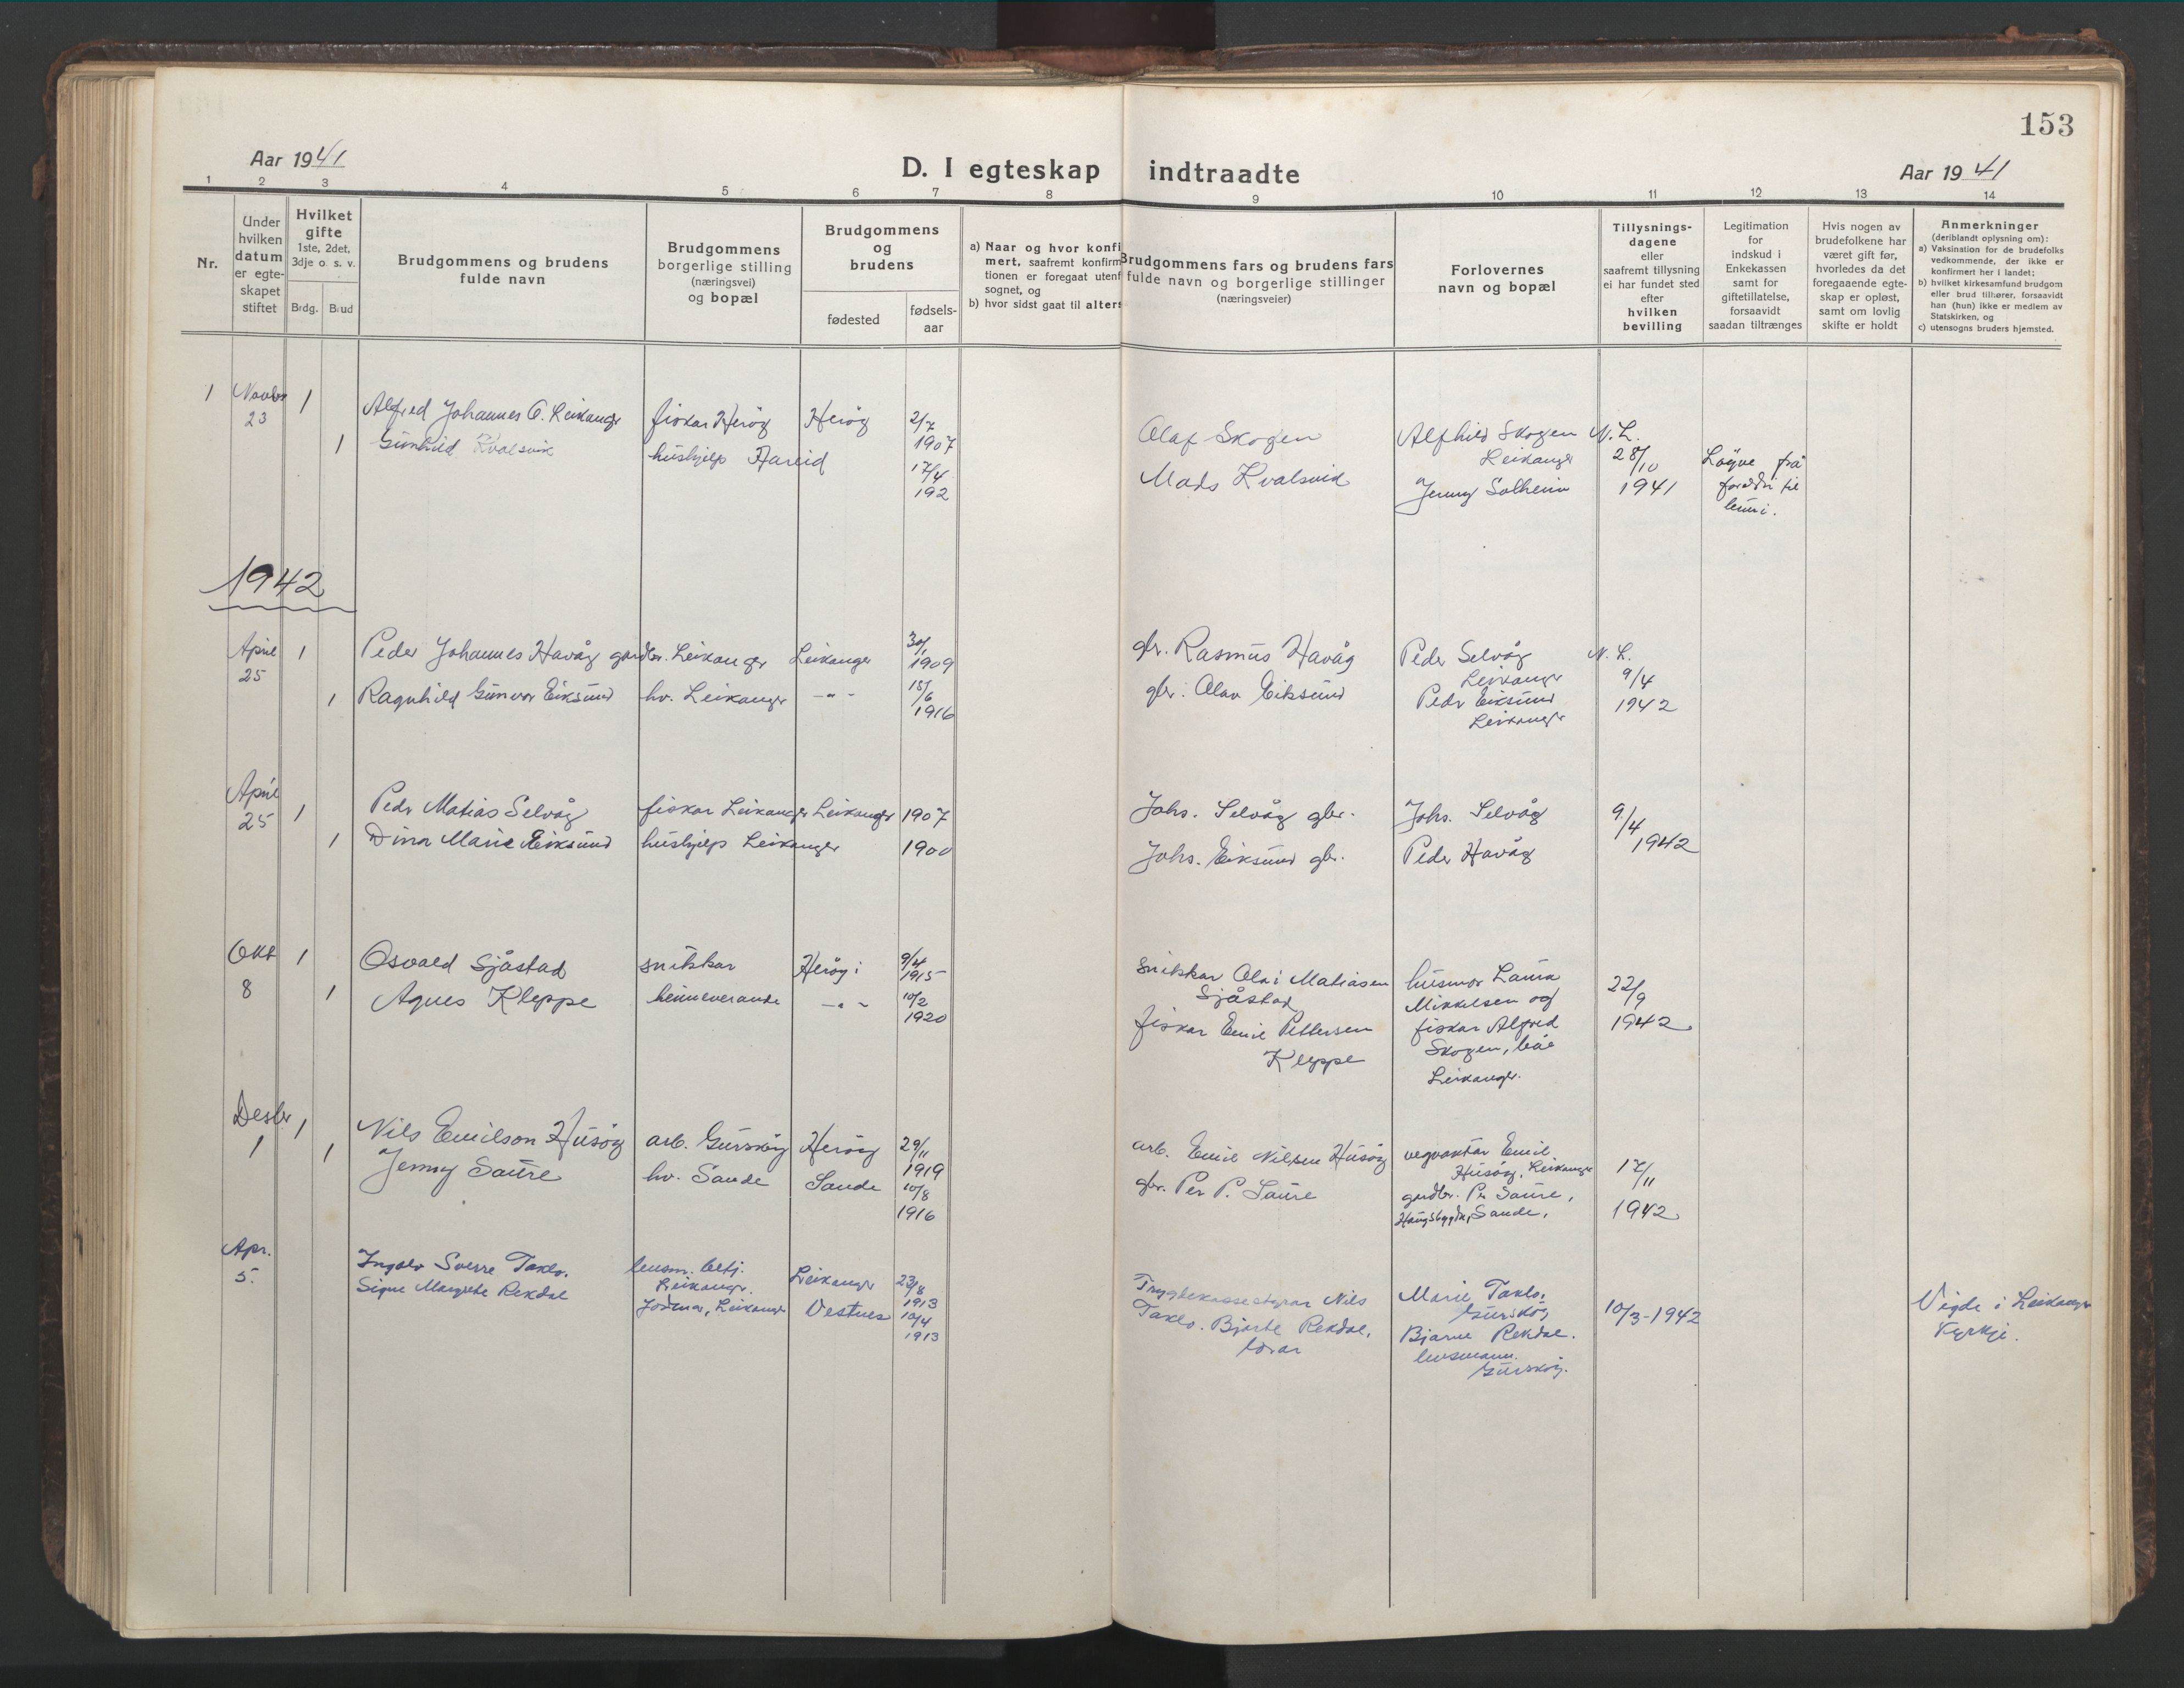 153
Aar 1941
D. I egteskap indtraadte
Aar 1941
1 2 3 4 5 6 7 8 9 10 11 12 13 14
Nr.
Under
hvilken
datum
er egte-
skapet
stiftet
Hvilket
gifte
1ste, 2det,
3dje o. s. v.
Brdg. Brud
Brudgommens og brudens
fulde navn
Brudgommens
borgerlige stilling
(næringsvei)
og bopæl
Brudgommens
og
brudens
fødested
fødsels-
aar
a) Naar og hvor konfi
mert, saafremt konfirm
tionen er foregaat utenf
sognet, og
b) hvor sidst gaat til alters
Brudgommens fars og brudens fars
fulde navn og borgerlige stillinger
(næringsveier)
Forlovernes
navn og bopæl
Tillysnings-
dagene
eller
saafremt tillysning
ei har fundet sted
efter
hvilken
bevilling
Legitimation
for
indskud i
Enkekassen
samt for
giftetillatelse,
forsaavidt
saadan tiltrænges
Hvis nogen av
brudefolkene har
været gift før,
hvorledes da det
foregaaende egte-
skap er opløst,
samt om lovlig
skifte er holdt
Anmerkninger
(deriblandt oplysning om):
a) Vaksination for de brudefolks
vedkommende, der ikke er
konfirmert her i landet;
b) hvilket kirkesamfund brudgom
eller brud tilhører, forsaavidt
han (hun) ikke er medlem av
Statskirken, og
c) utensogns bruders hjemsted.
1 Novbr 23
1 Alfred Johannes O. Leikanger fiskar Herøy Herøy 2/7 1907
1 Gunhild Kvalsvik hushjelp Hareid 17/4 192
Olaf Skogen
Mads Kvalsvik
Alfhild Skogen
Leikanger
Jenny Solheim
N. L.
28/10
1941
Løyve frå
foreldri til
1942
April 25
1 Peder Johannes Havåg gardbr. Leikanger Leikanger 30/1 1909
1 Ragnhild Gunvor Eiksund hv. Leikanger - " - 18/6 1916
gbr. Rasmus Havåg
gbr. Olav Eiksund
Peder Selvåg
Leikanger
Peder Eiksund
Leikanger
N. L.
9/4
1942
April 25
1 Peder Matias Selvåg fiskar Leikanger Leikanger 1907
1 Dina Marie Eiksund hushjelp Leikanger 1900
Johs. Selvåg gbr.
Johs. Eiksund gbr.
Johs. Selvåg
Peder Havåg
9/4
1942
Okt 8
1 Osvald Sjåstad snikkar Herøy i 9/4 1915
1 Agnes Kleppe heimeverande - " - 10/2 1920
snikkar Olai Matiasen
Sjåstad
fiskar Emil Pettersen
Kleppe
husmor Laura
Mikkelsen og
fiskar Alfred
Skogen, båe
Leikanger.
22/9
1942
Desbr 1
1 Nils Emilson Husøy arb. Gurskøy Herøy 29/11 1919
1 Jenny Saure hv. Sande Sande 10/8 1916
arb. Emil Nilsen Husøy
gbr. Per P. Saure
vegvaktar Emil
Husøy, Leikanger
gardbr. Per Saure,
Haugsbygda, Sande.
17/11
1942
Apr. 5.
Ingolv Sverre Taklo. lensm. betj.
Leikanger. Leikanger 23/8 1913
Signe Margrethe Rekdal Jordmor, Leikanger Vestnes 10/4 1913
Trygdekassestyrar Nils
Taklo. Bjarte Rekdal,
lærar
Marie Taklo,
Gurskøy
Bjarne Rekdal.
lensmann.
Gurskøy.
10/3-1942
Vigde i Leikanger
Kyrkje.